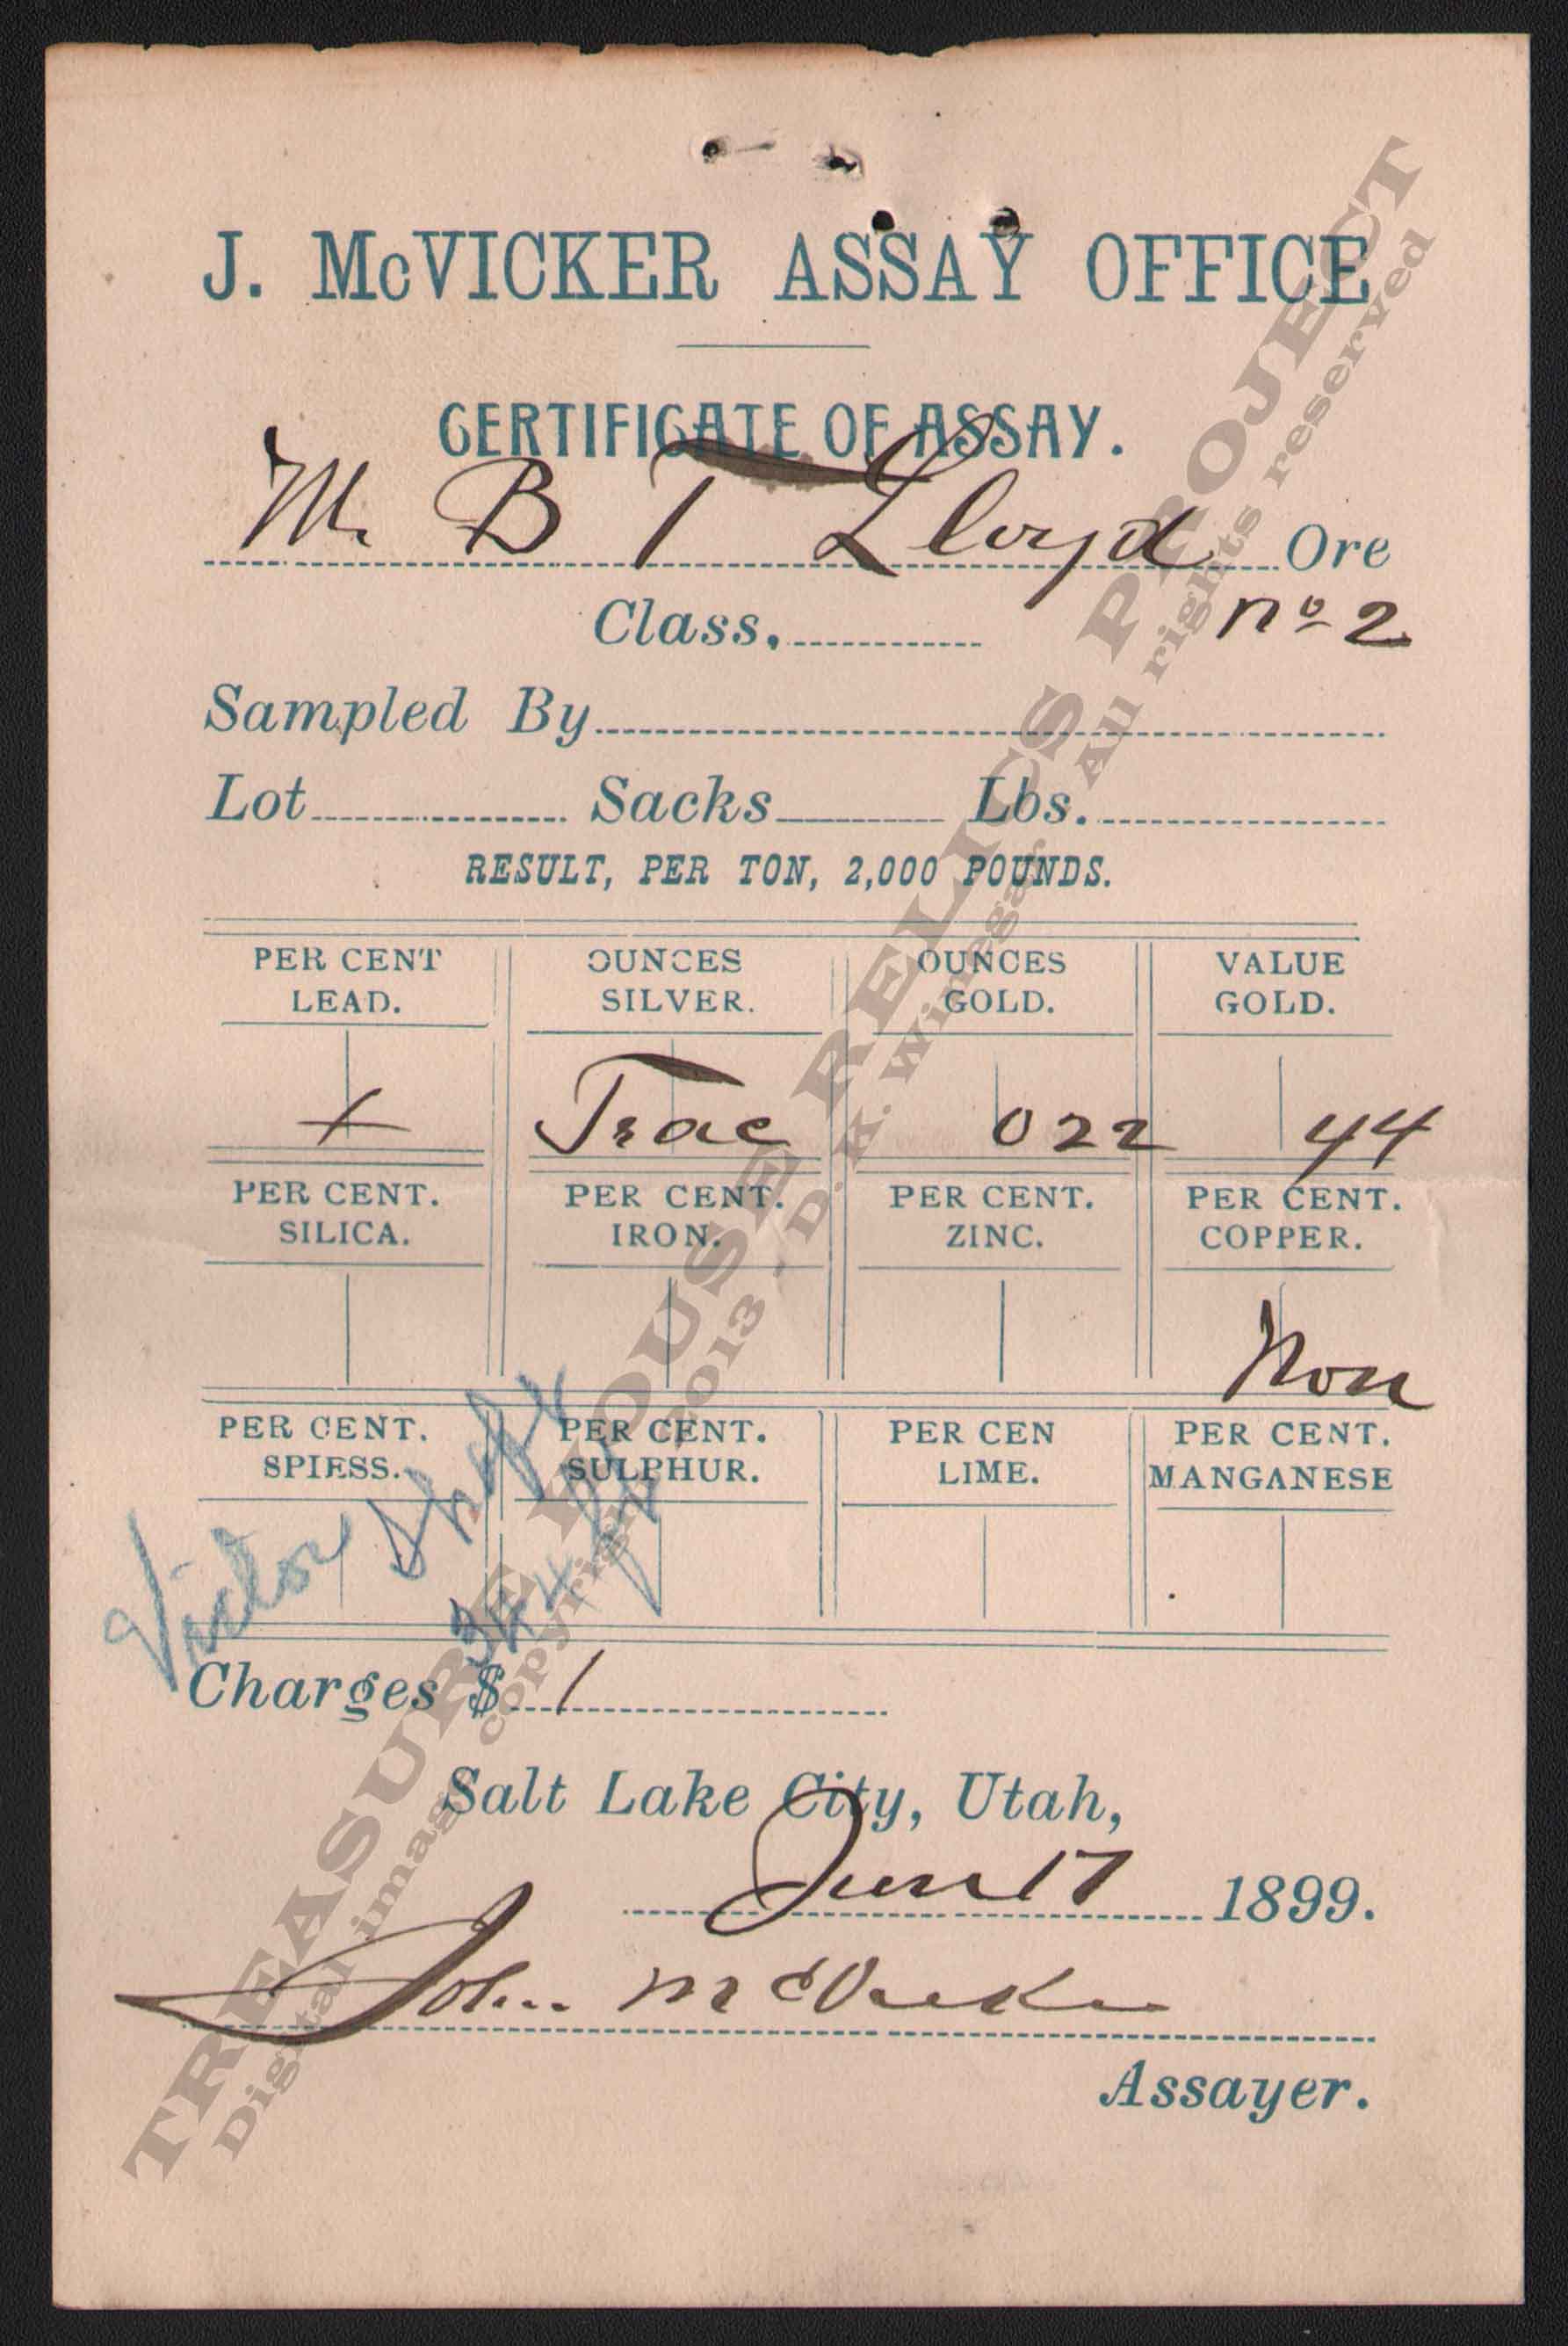 J. McVICKER ASSAY OFFICE
CERTIFICATE OF ASSAY.
Mr B T Lloyd Ore
Class, No 2
Sampled By
Lot Sacks Lbs.
RESULT, PER TON, 2,000 POUNDS.
PER CENT LEAD. OUNCES SILVER. OUNCES GOLD. VALUE GOLD.
+ Trac 022 44
PER CENT. SILICA. PER CENT. IRON. PER CENT. ZINC. PER CENT. COPPER.
Non
PER CENT. SPIESS. PER CENT. SULPHUR. PER CEN LIME. PER CENT. MANGANESE
Victor Shaft
Charges $ 1
Salt Lake City, Utah,
June 17 1899.
John McVicker
Assayer.
TREASURE HOUSE RELICS PROJECT
Digital image copyright 2013 - D. K. Winegar All rights reserved